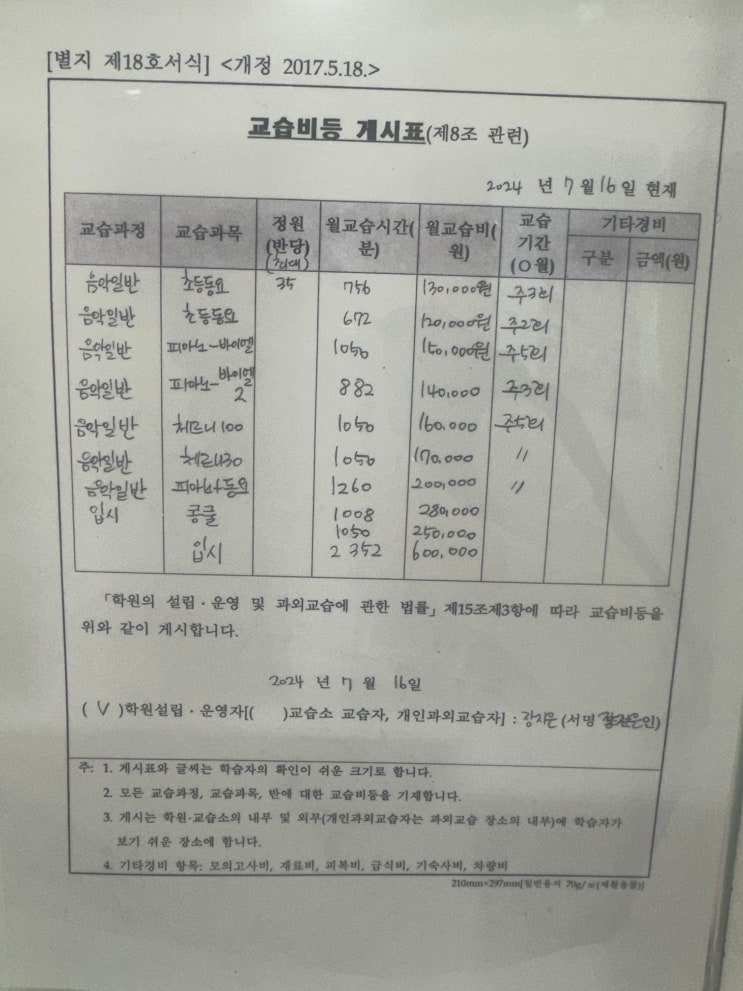 [별지 제18호서식] <개정 2017.5.18.>
교습비등 게시표(제8조 관련)
2024 년 7 월 16 일 현재
교습과정 교습과목 정원(반당)(최대) 월교습시간(분) 월교습비(원) 교습기간(O월) 기타경비 구분 금액(원)
음악일반 초등동요 35 756 130,000원 주3회
음악일반 초등동요 672 120,000원 주2회
음악일반 피아노-바이엘 1050 150,000원 주5회
음악일반 피아노-바이엘2 882 140,000 주3회
음악일반 체르니100 1050 160,000 주5회
음악일반 체르니30 1050 170,000 〃
음악일반 피아노+동요 1260 200,000 〃
입시 콩쿨 1008 280,000
1050 250,000
입시 2352 600,000
「학원의 설립·운영 및 과외교습에 관한 법률」 제15조제3항에 따라 교습비등을
위와 같이 게시합니다.
2024 년 7 월 16일
( V )학원설립·운영자[( )교습소 교습자, 개인과외교습자] : (서명 인)
주: 1. 게시표와 글씨는 학습자의 확인이 쉬운 크기로 합니다.
2. 모든 교습과정, 교습과목, 반에 대한 교습비등을 기재합니다.
3. 게시는 학원·교습소의 내부 및 외부(개인과외교습자는 과외교습 장소의 내부)에 학습자가
보기 쉬운 장소에 합니다.
4. 기타경비 항목: 모의고사비, 재료비, 피복비, 급식비, 기숙사비, 차량비
210mm×297mm[일반용지 70g/㎡(재활용품)]